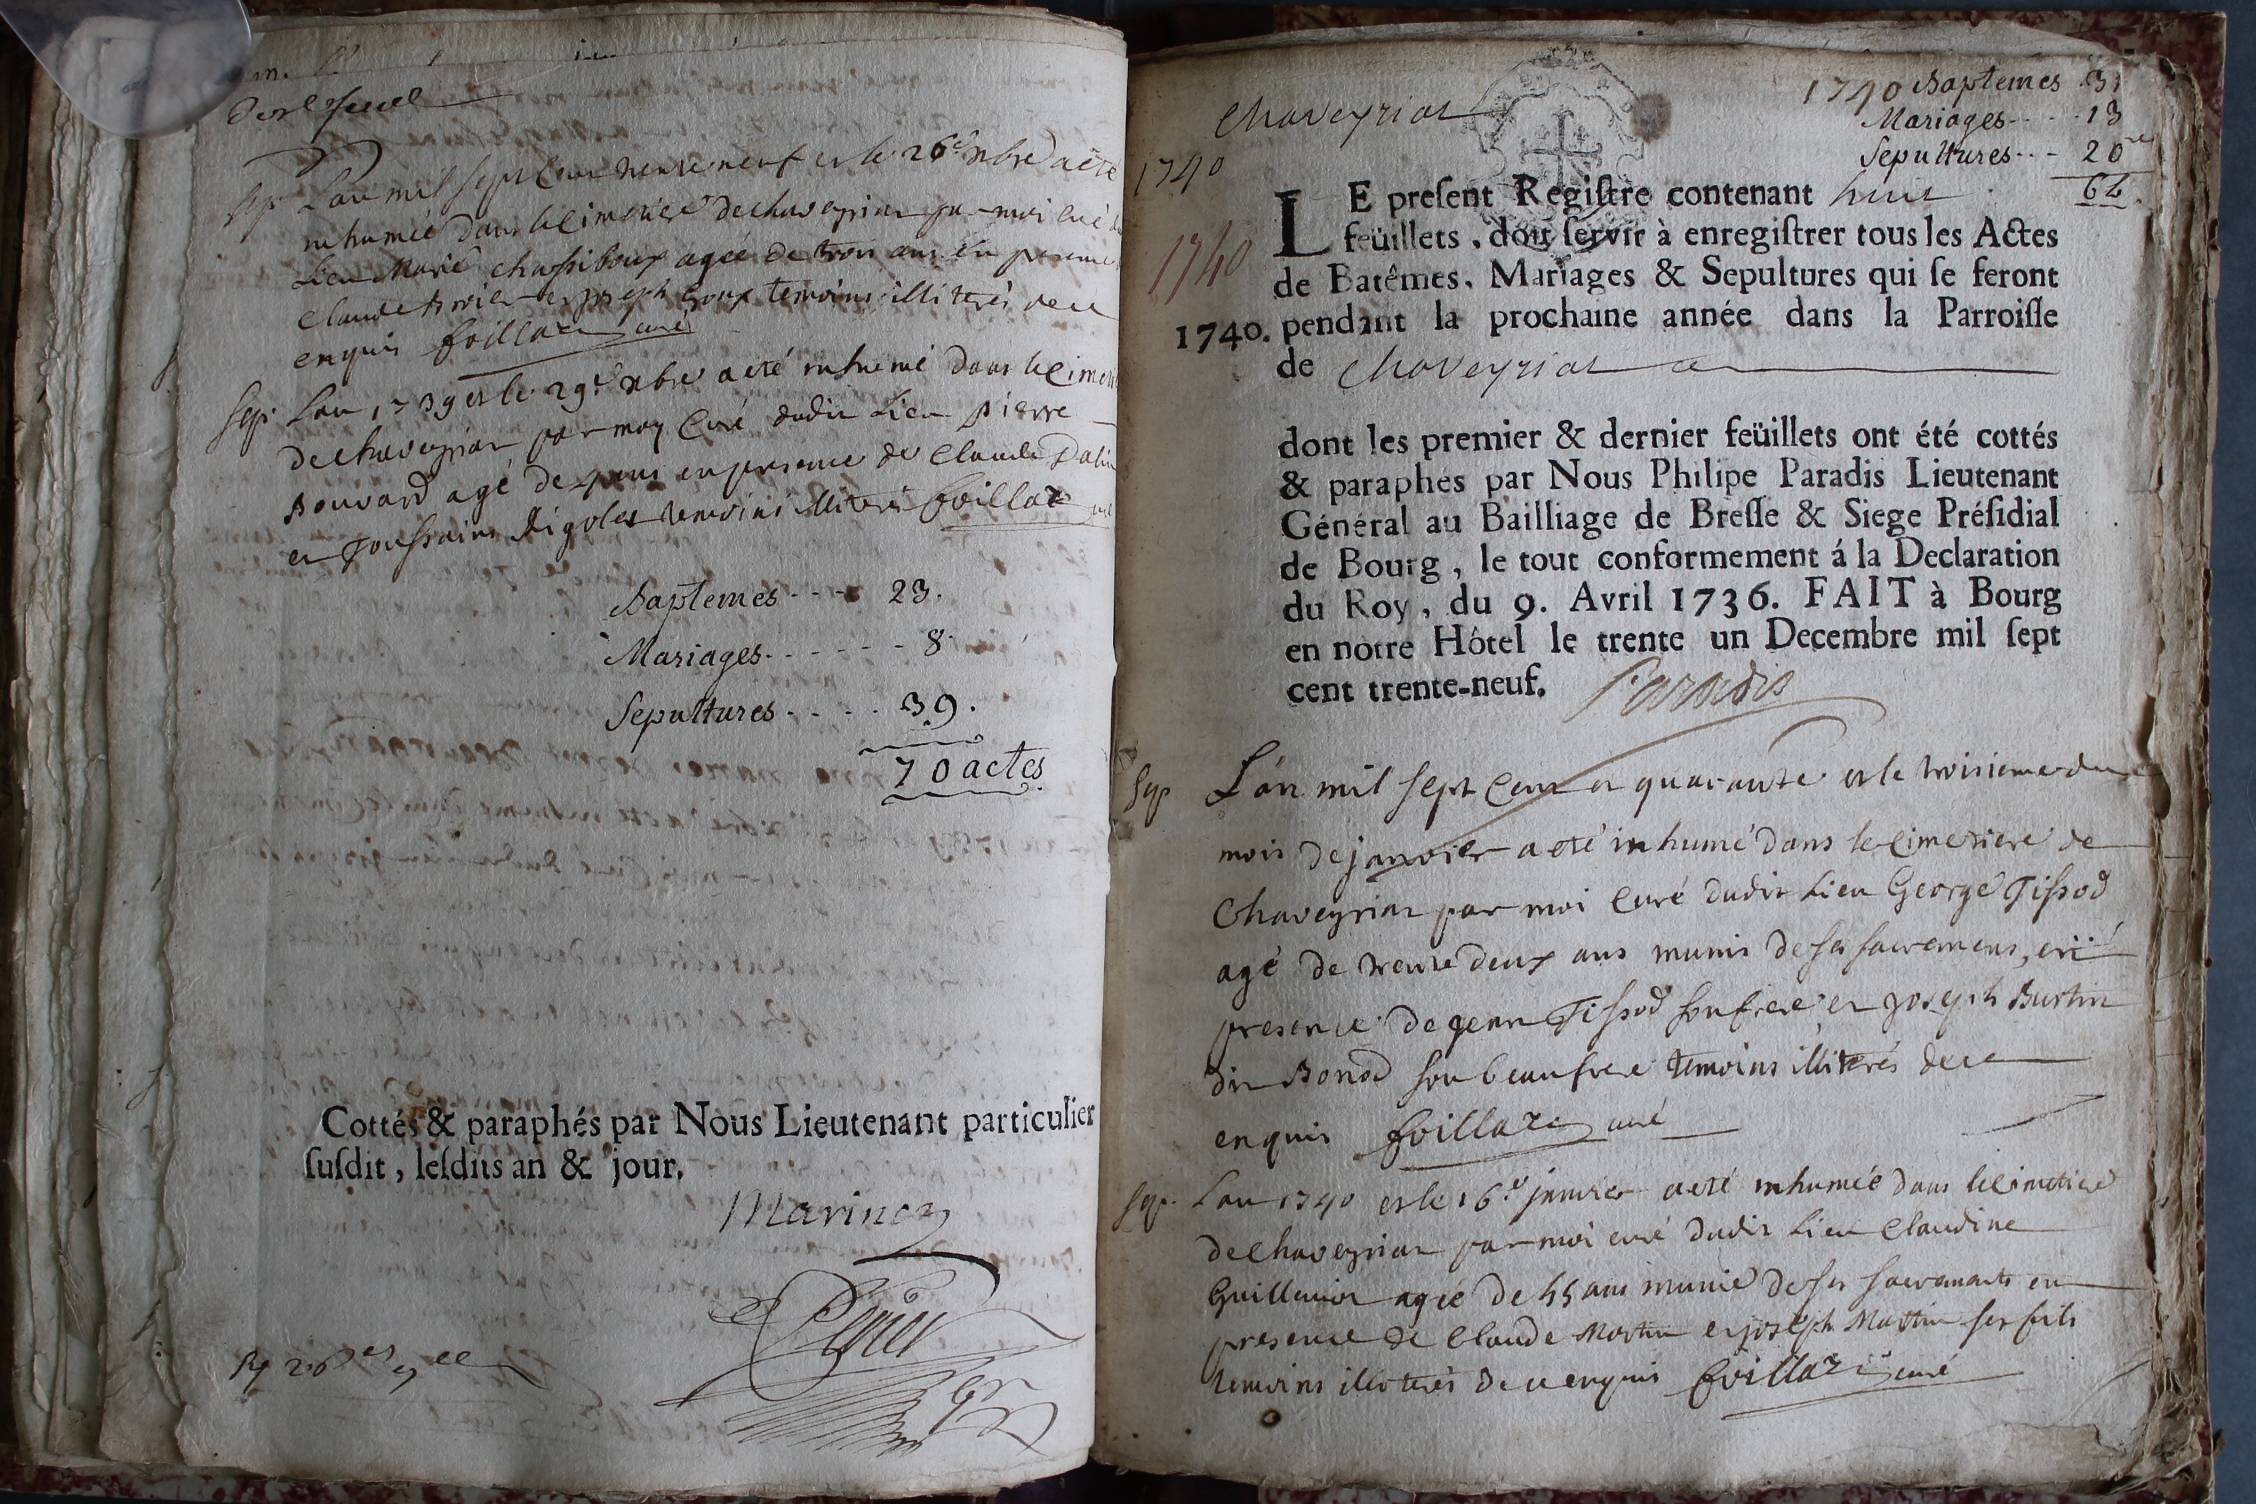 Sep. L'an mil sept cent trente neuf et le 26e xbre a eté
inhumée dans le cimetiere de chaveyriat par moi curé du
Lieu Marie chassiboux agée de trois ans en presence
claude et joseph temoins illiterés de ce
enquis foillaz curé
Sep. L'an 1739 et le 29e xbre a eté inhumé dans le cimet
de chaveyriat par moy curé dudit Lieu pierre
Bouvard agé de ans en presence de claude
et Toussaint Rigolet temoins illiterés foillaz curé
Baptemes - - - 23.
Mariages - - - - - - 8.
Sepultures - - - - 39.
70 actes
Cottés & paraphés par Nous Lieutenant particulier
susdit, lesdits an & jour.
Marinon
Chaveyriat
1740 Baptemes 31
Mariages - - - - 13
Sepultures - - - 20
64
1740
1740
LE present Registre contenant huit
feüillets, doit servir à enregistrer tous les Actes
de Batêmes, Mariages & Sepultures qui se feront
1740. pendant la prochaine année dans la Parroisse
de Chaveyriat
dont les premier & dernier feüillets ont été cottés
& paraphés par Nous Philipe Paradis Lieutenant
Général au Bailliage de Bresse & Siege Présidial
de Bourg, le tout conformement á la Declaration
du Roy, du 9. Avril 1736. FAIT à Bourg
en notre Hôtel le trente un Decembre mil sept
cent trente-neuf. Paradis
Sep L'an mil sept cent et quarante et le troisieme du
mois de janvier a eté inhumé dans le cimetiere de
Chaveyriat par moi curé dudit Lieu George Tissod
agé de trente deux ans munis de ses sacremens, en
presence de jean Tissod son frere et joseph Burtin
dit Bonod son beaufrere temoins illiterés de ce
enquis foillaz curé
Sep. L'an 1740 et le 16e janvier a eté inhumée dans le cimetiere
de chaveyriat par moi curé dudit Lieu claudine
Guillemot agée de 55 ans munie de ses sacremants en
presence de claude Martin et joseph Martin ses fils
temoins illiterés de ce enquis foillaz curé